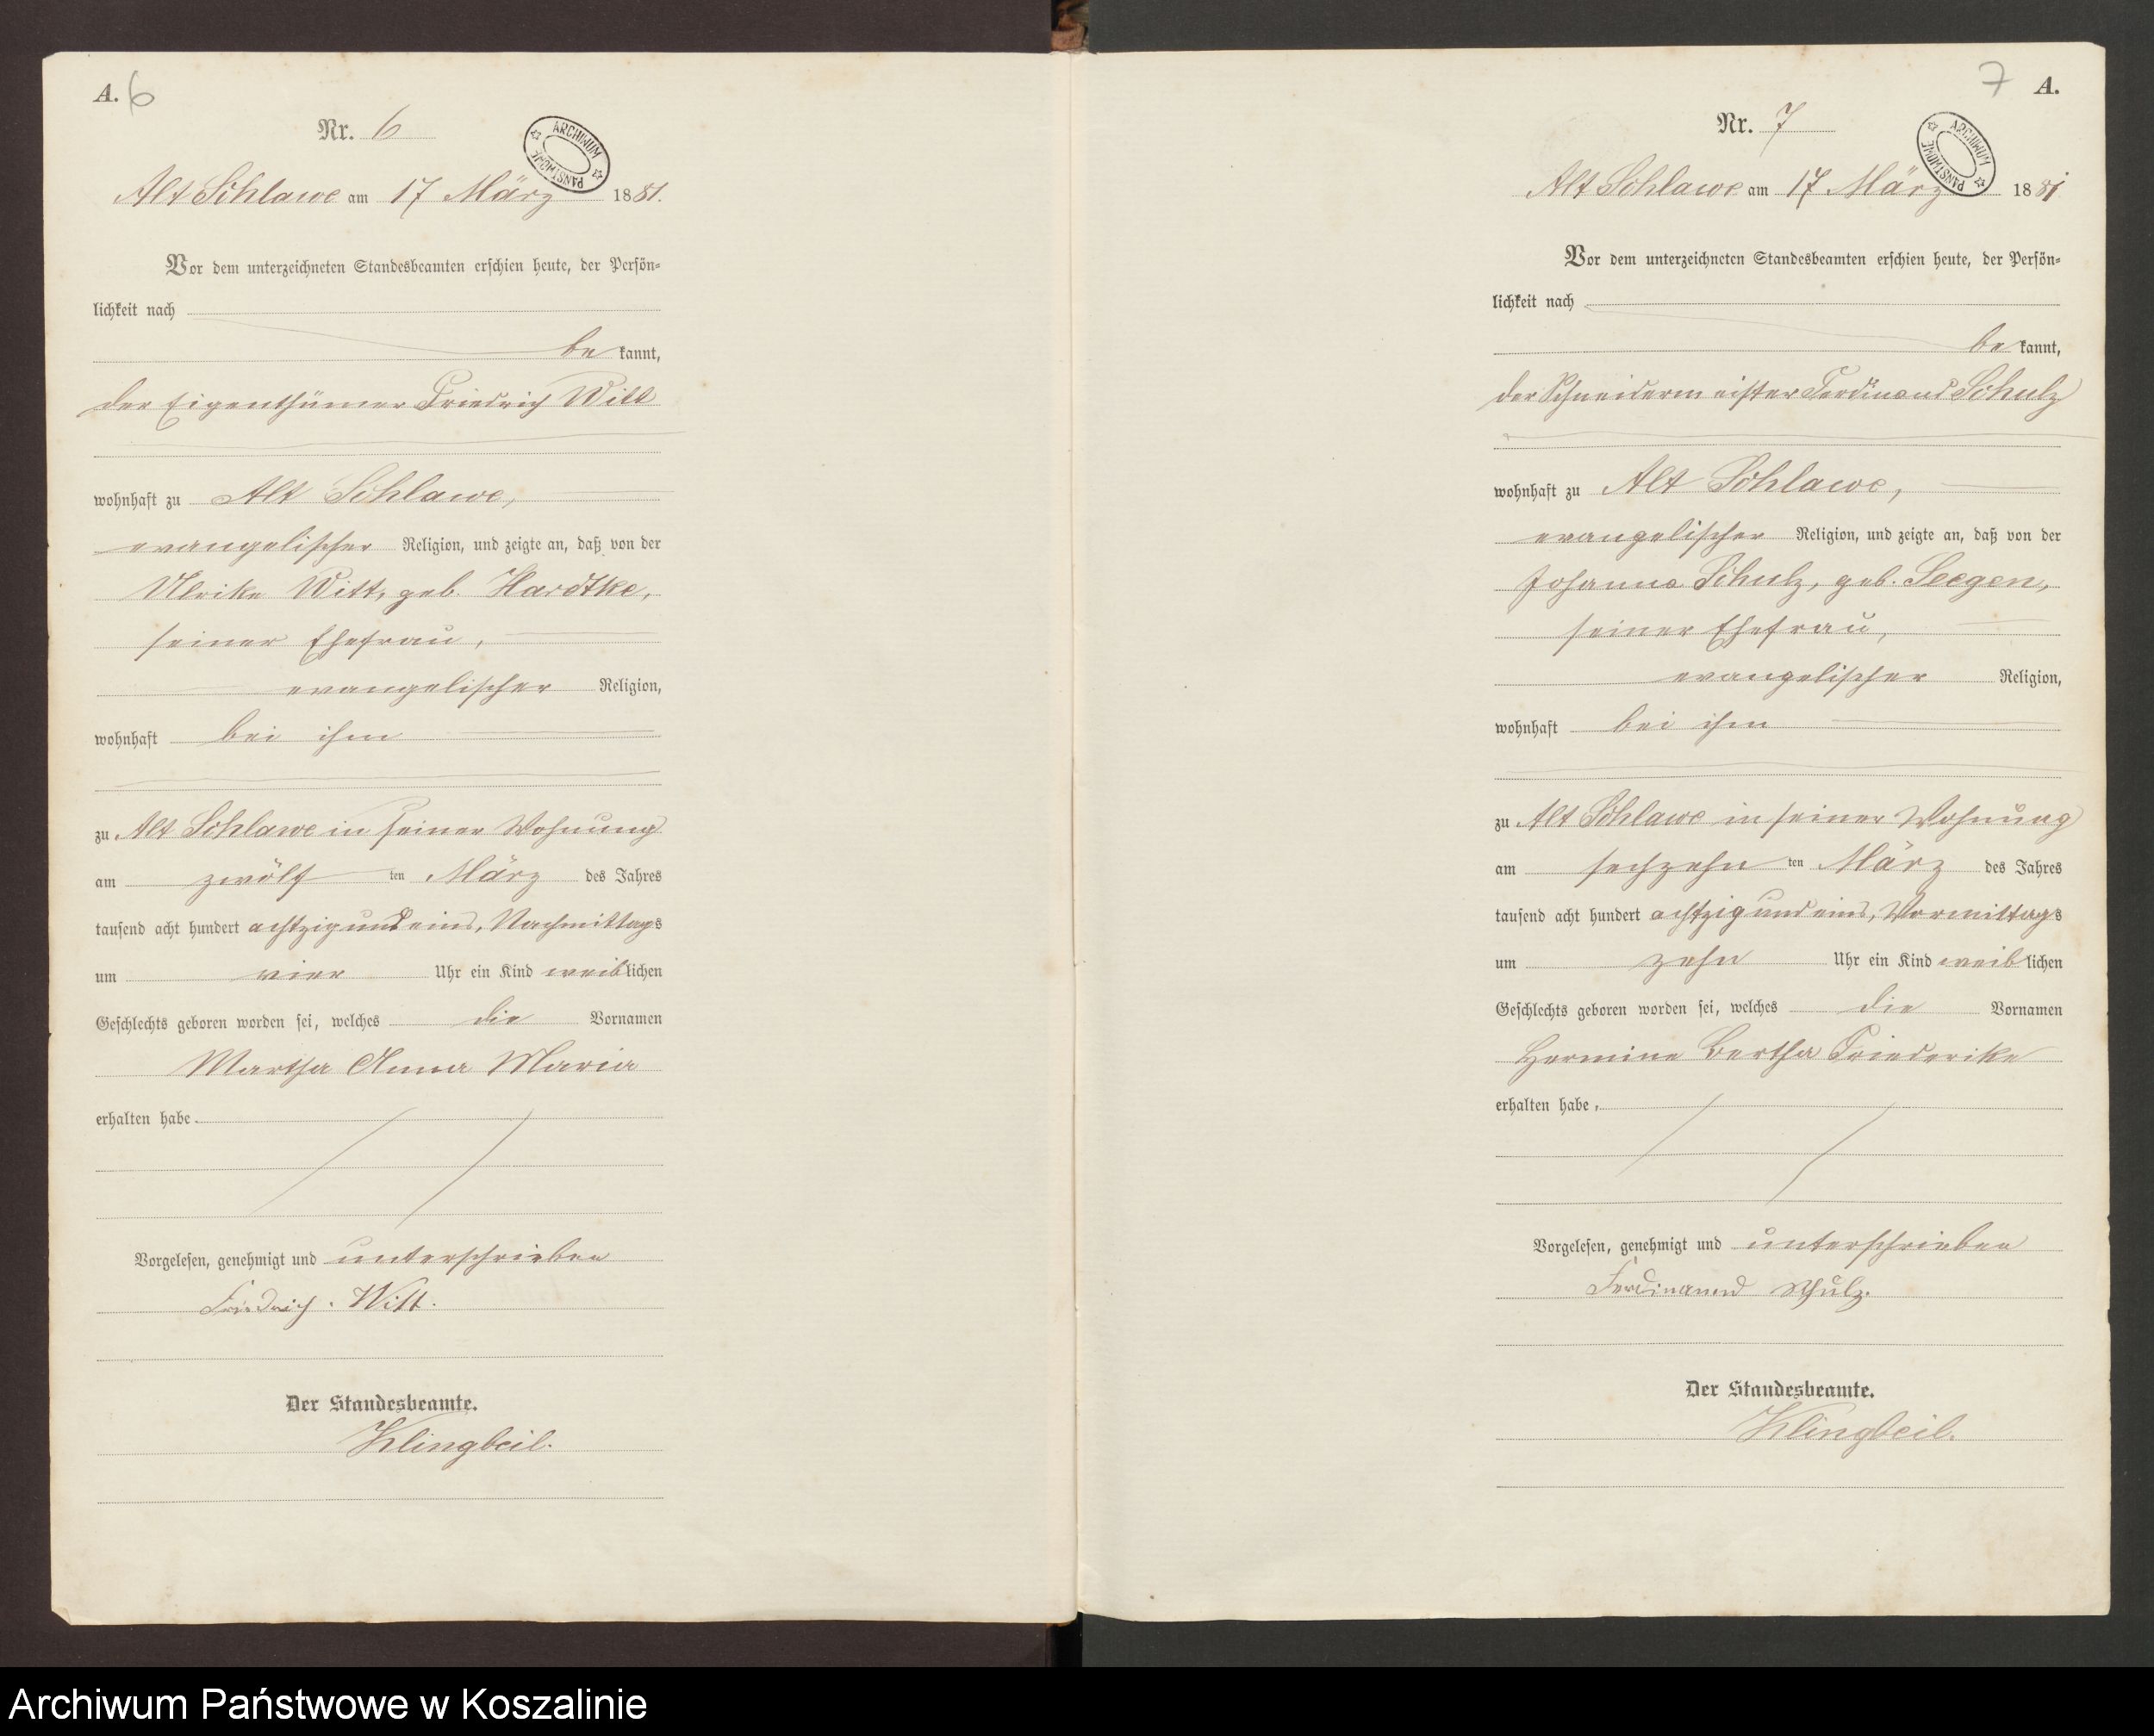 A. 6
Nr. 6
ARCHIWUM PAŃSTWOWE
Alt Schlawe am 17 März 1881.
Vor dem unterzeichneten Standesbeamten erschien heute, der Persön=
lichkeit nach
be kannt,
der Eigenthümer Friedrich Witt
wohnhaft zu Alt Schlawe,
evangelischer Religion, und zeigte an, daß von der
Ulrike Witt, geb. Hardtke,
seiner Ehefrau,
evangelischer Religion,
wohnhaft bei ihm
zu Alt Schlawe in seiner Wohnung
am zwölf ten März des Jahres
tausend acht hundert achtzig und eins, Nachmittags
um vier Uhr ein Kind weiblichen
Geschlechts geboren worden sei, welches die Vornamen
Martha Anna Maria
erhalten habe.
Vorgelesen, genehmigt und unterschrieben
Friedrich. Witt.
Der Standesbeamte.
Klingbeil.
7 A.
Nr. 7
ARCHIWUM PAŃSTWOWE
Alt Schlawe am 17 März 1881
Vor dem unterzeichneten Standesbeamten erschien heute, der Persön=
lichkeit nach
be kannt,
der Schneidermeister Ferdinand Schulz
wohnhaft zu Alt Schlawe,
evangelischer Religion, und zeigte an, daß von der
Johanna Schulz, geb. Seegen,
seiner Ehefrau,
evangelischer Religion,
wohnhaft bei ihm
zu Alt Schlawe in seiner Wohnung
am sechzehn ten März des Jahres
tausend acht hundert achtzig und eins, Vormittags
um zehn Uhr ein Kind weiblichen
Geschlechts geboren worden sei, welches die Vornamen
Hermine Bertha Friederike
erhalten habe.
Vorgelesen, genehmigt und unterschrieben
Ferdinannd Schulz.
Der Standesbeamte.
Klingbeil.
Archiwum Państwowe w Koszalinie